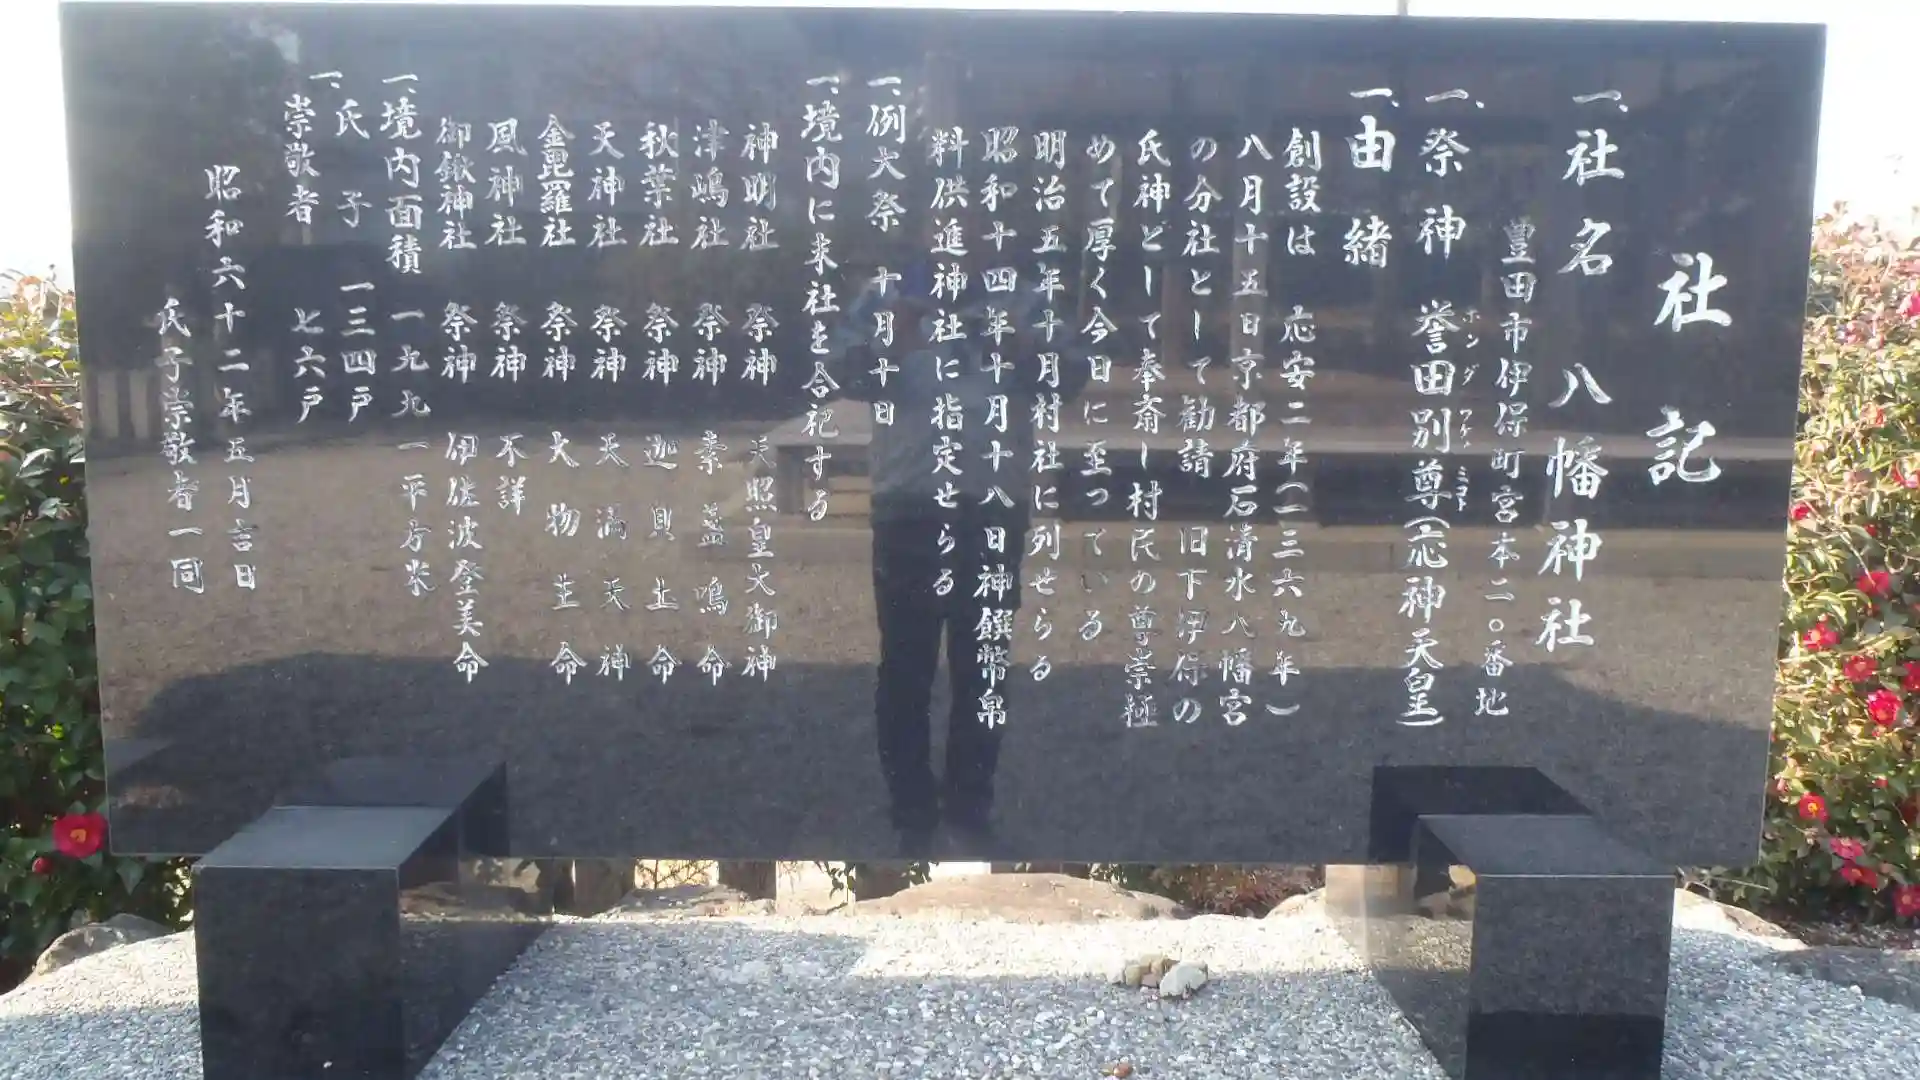 社記
一、社名 八幡神社
豊田市伊保町宮本二〇番地
一、祭神 誉田別尊(応神天皇)
ホンダ ワケノ ミコト
一、由緒
創設は 応安二年(一三六九年)
八月十五日京都府石清水八幡宮
の分社として勧請 旧下伊保の
氏神として奉斎し村民の尊崇極
めて厚く今日に至つている
明治五年十月村社に列せらる
昭和十四年十月十八日神饌幣帛
料供進神社に指定せらる
一、例大祭 十月十日
一、境内に末社を合祀する
神明社 祭神 天照皇大御神
津嶋社 祭神 素盞鳴命
秋葉社 祭神 迦具土命
天神社 祭神 天満天神
金毘羅社 祭神 大物主命
風神社 祭神 不詳
御鍬神社 祭神 伊佐波登美命
一、境内面積 一九九一平方米
一、氏子 一三四戸
崇敬者 七六戸
昭和六十二年五月吉日
氏子崇敬者一同